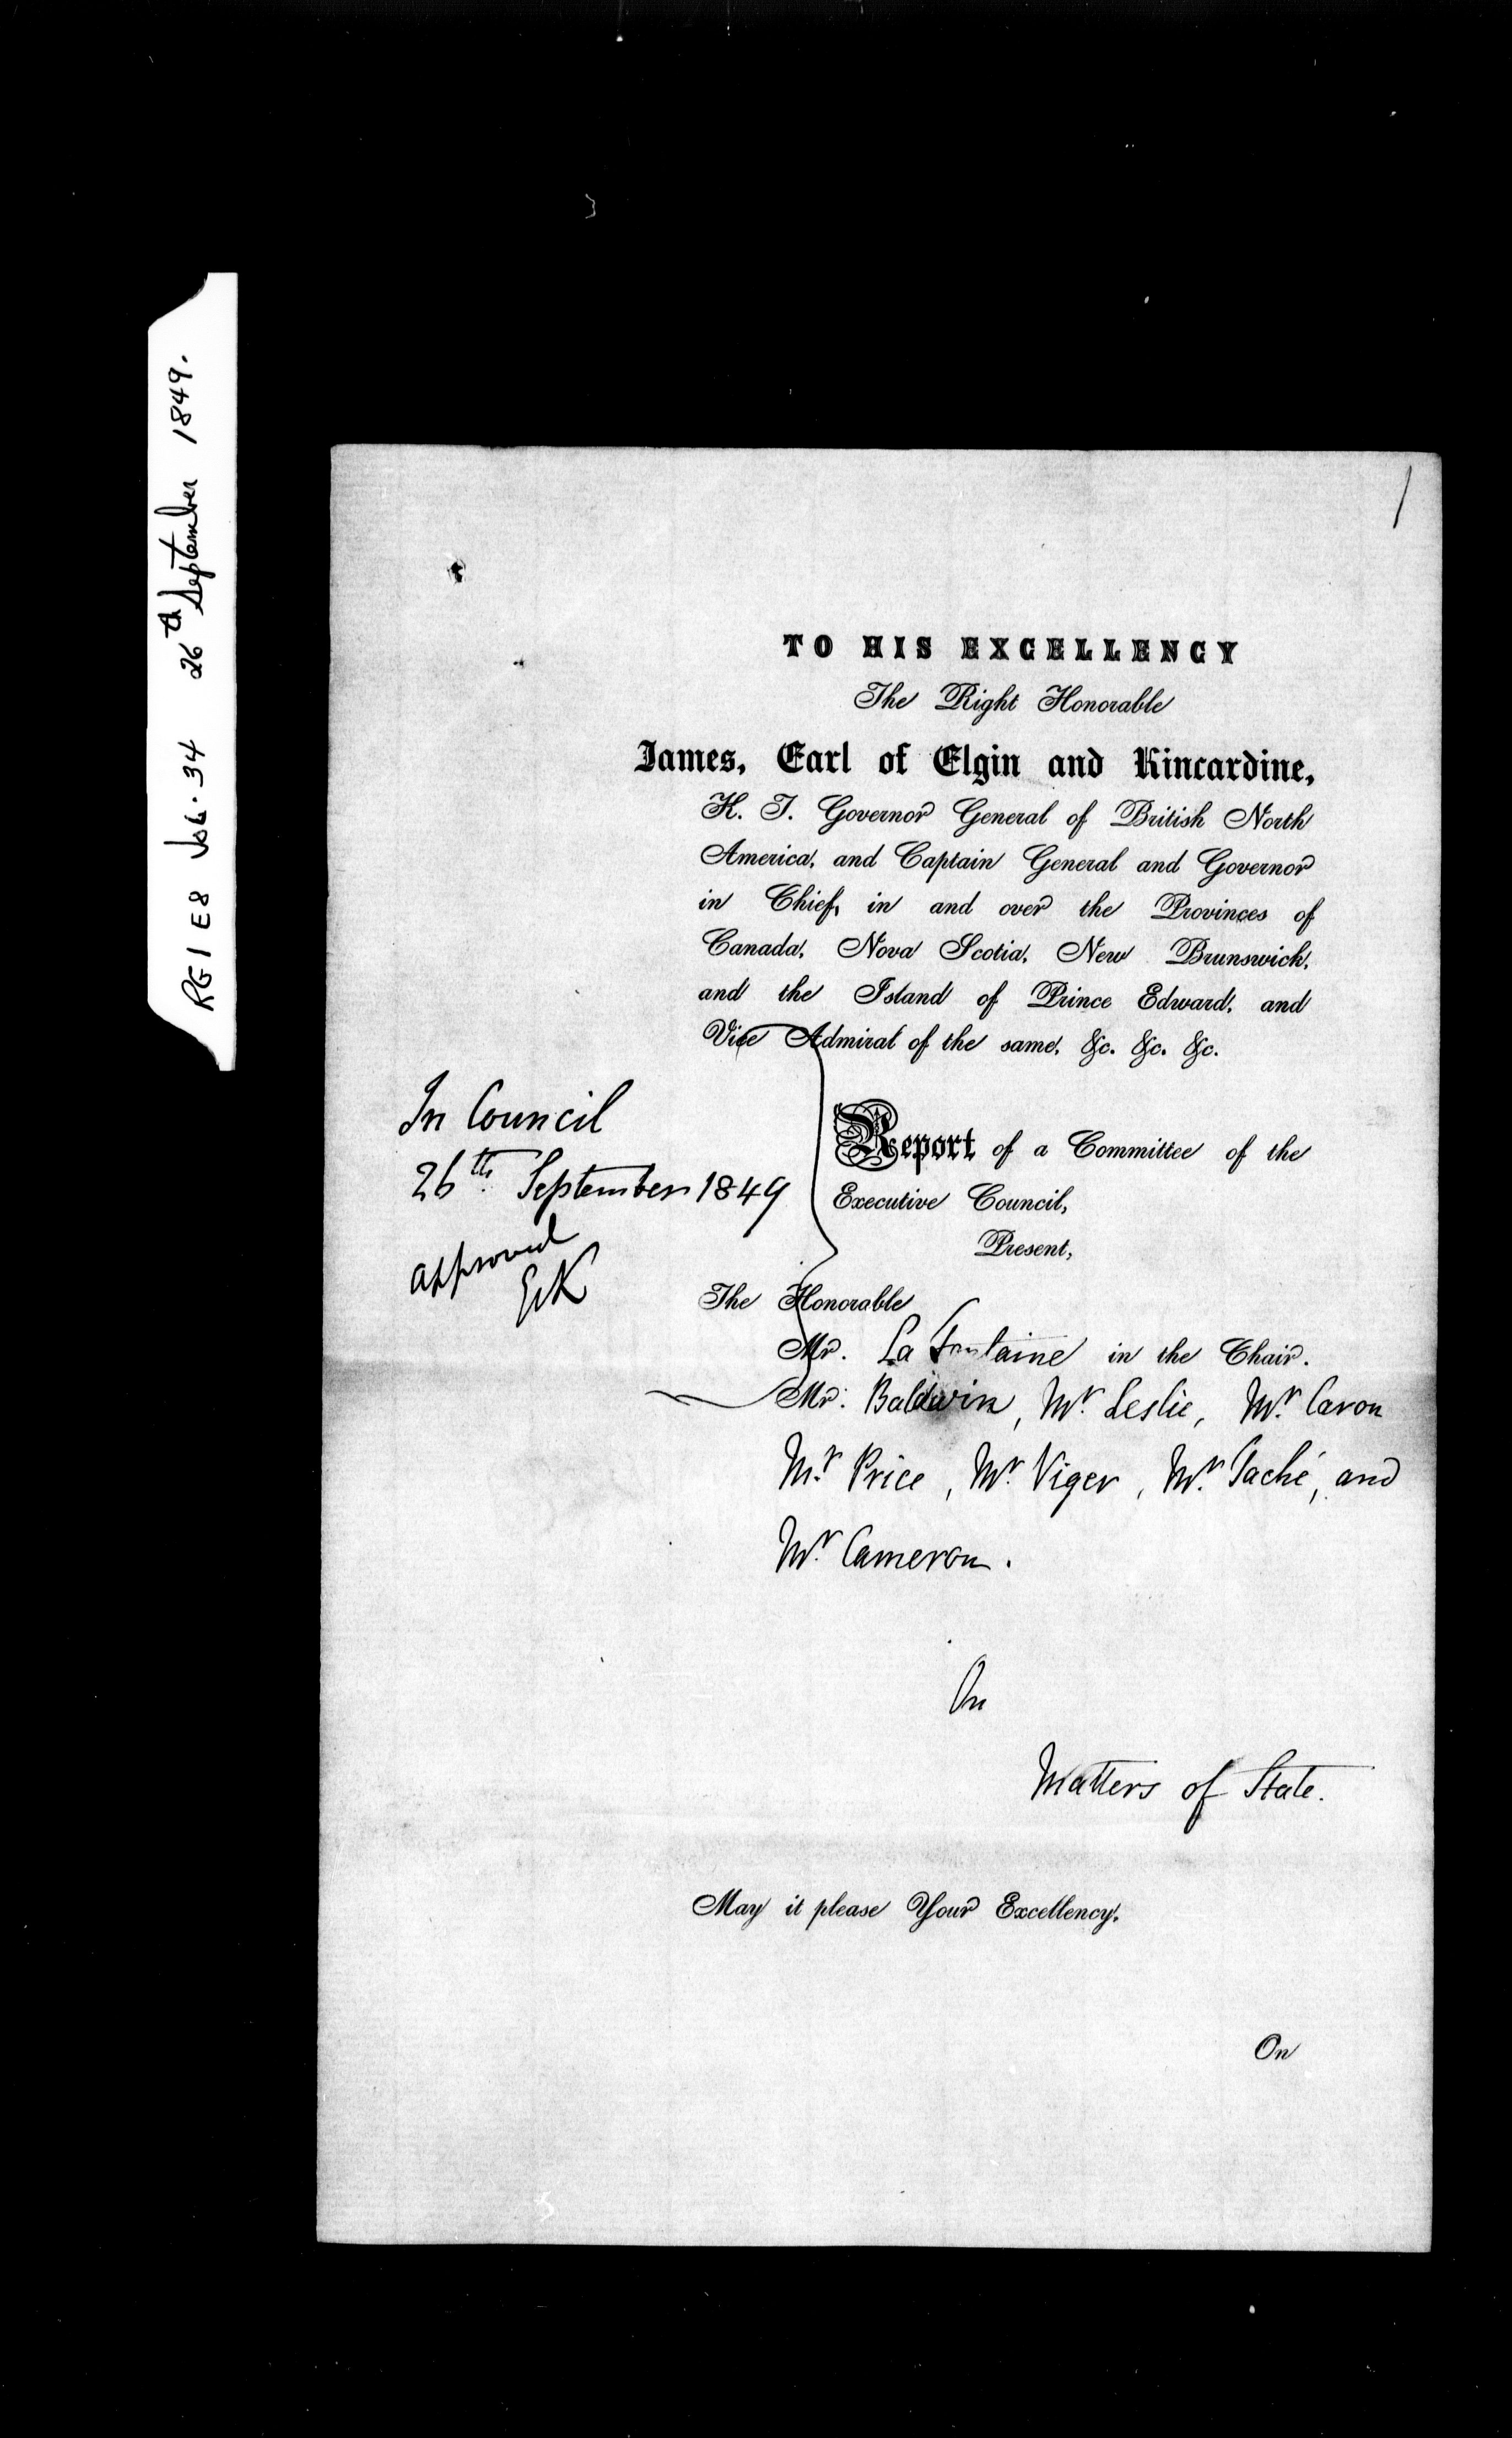 RG 1 E8 Vol. 34 26th September 1849.
1
TO HIS EXCELLENCY
The Right Honorable
James, Earl of Elgin and Kincardine,
K. T. Governor General of British North
America, and Captain General and Governor
in Chief, in and over the Provinces of
Canada, Nova Scotia, New Brunswick,
and the Island of Prince Edward, and
Vice Admiral of the same, &c. &c. &c.
In Council
26th September 1849
approved
E&K
Report of a Committee of the
Executive Council,
Present,
The Honorable
Mr. La Fontaine in the Chair.
Mr. Baldwin, Mr. Leslie, Mr. Caron
Mr. Price, Mr. Viger, Mr. Taché, and
Mr. Cameron.
On
Matters of State.
May it please Your Excellency,
On